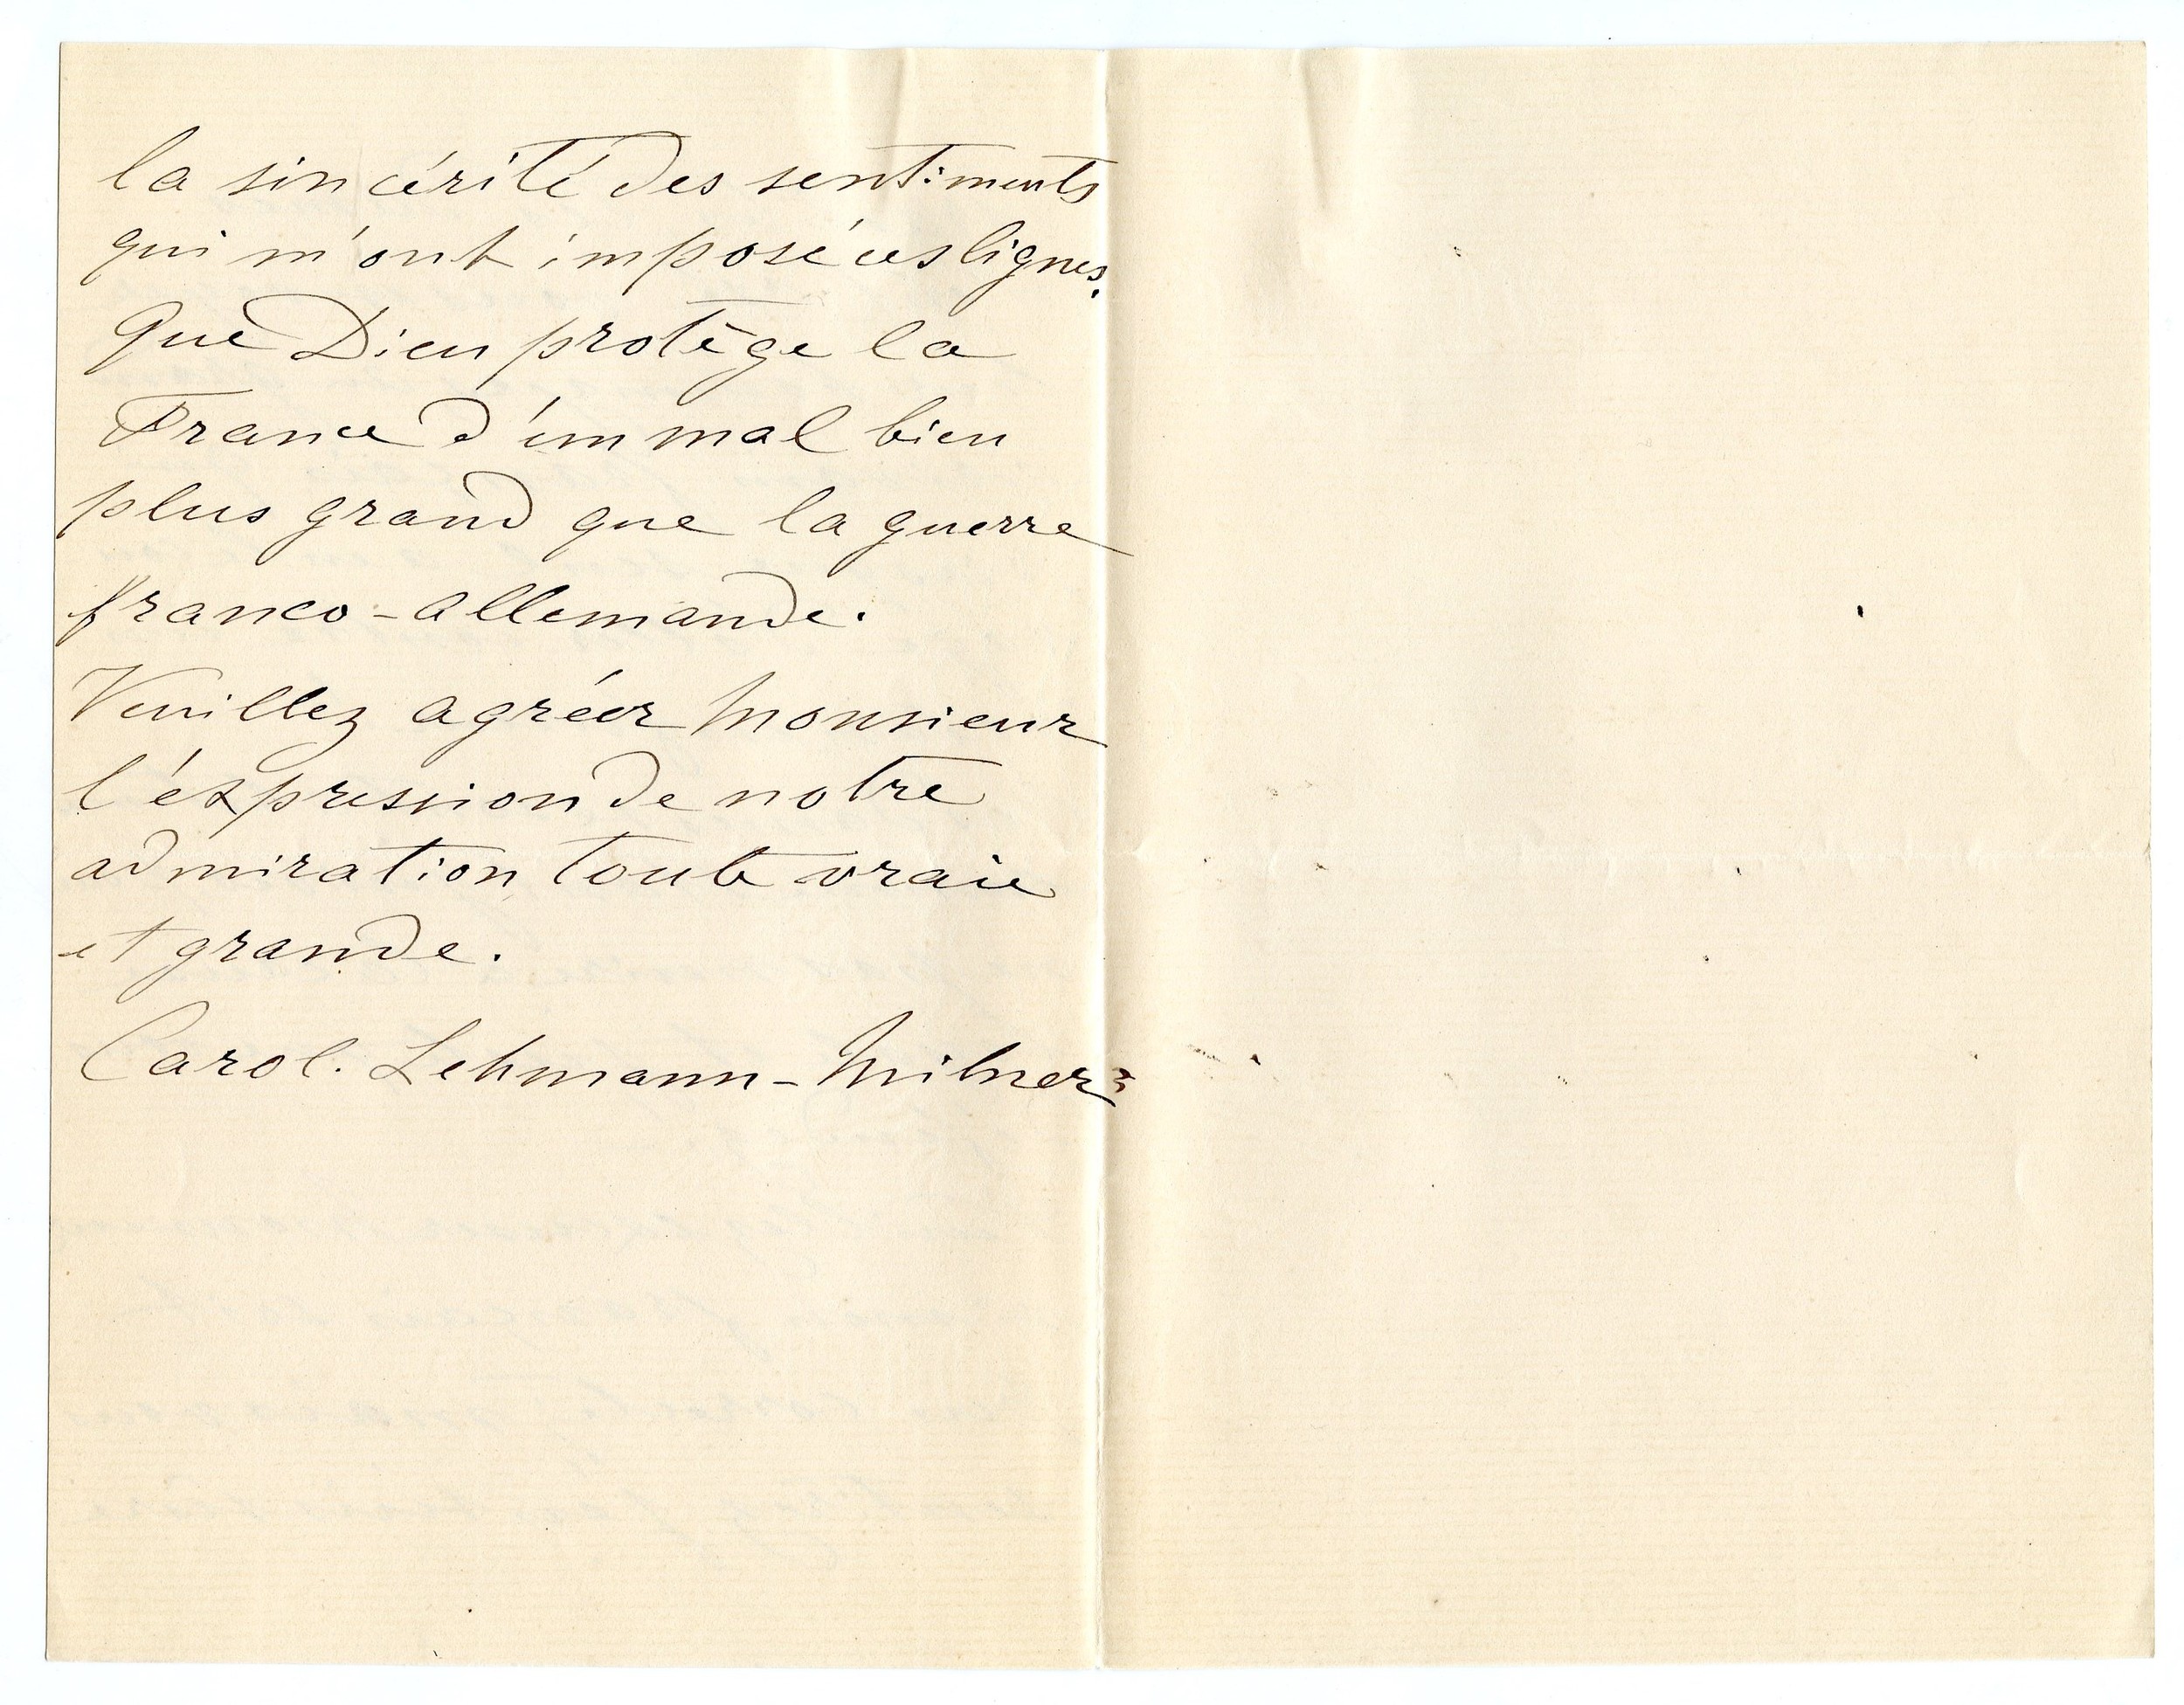 la sincérité des sentiments
qui m'ont imposé ces lignes.
Que Dieu protège la
France d'un mal bien
plus grand que la guerre
franco-allemande.
Veuillez agréer Monsieur
l'éxpression de notre
admiration toute vraie
et grande.
Carol. Lehmann-Milner